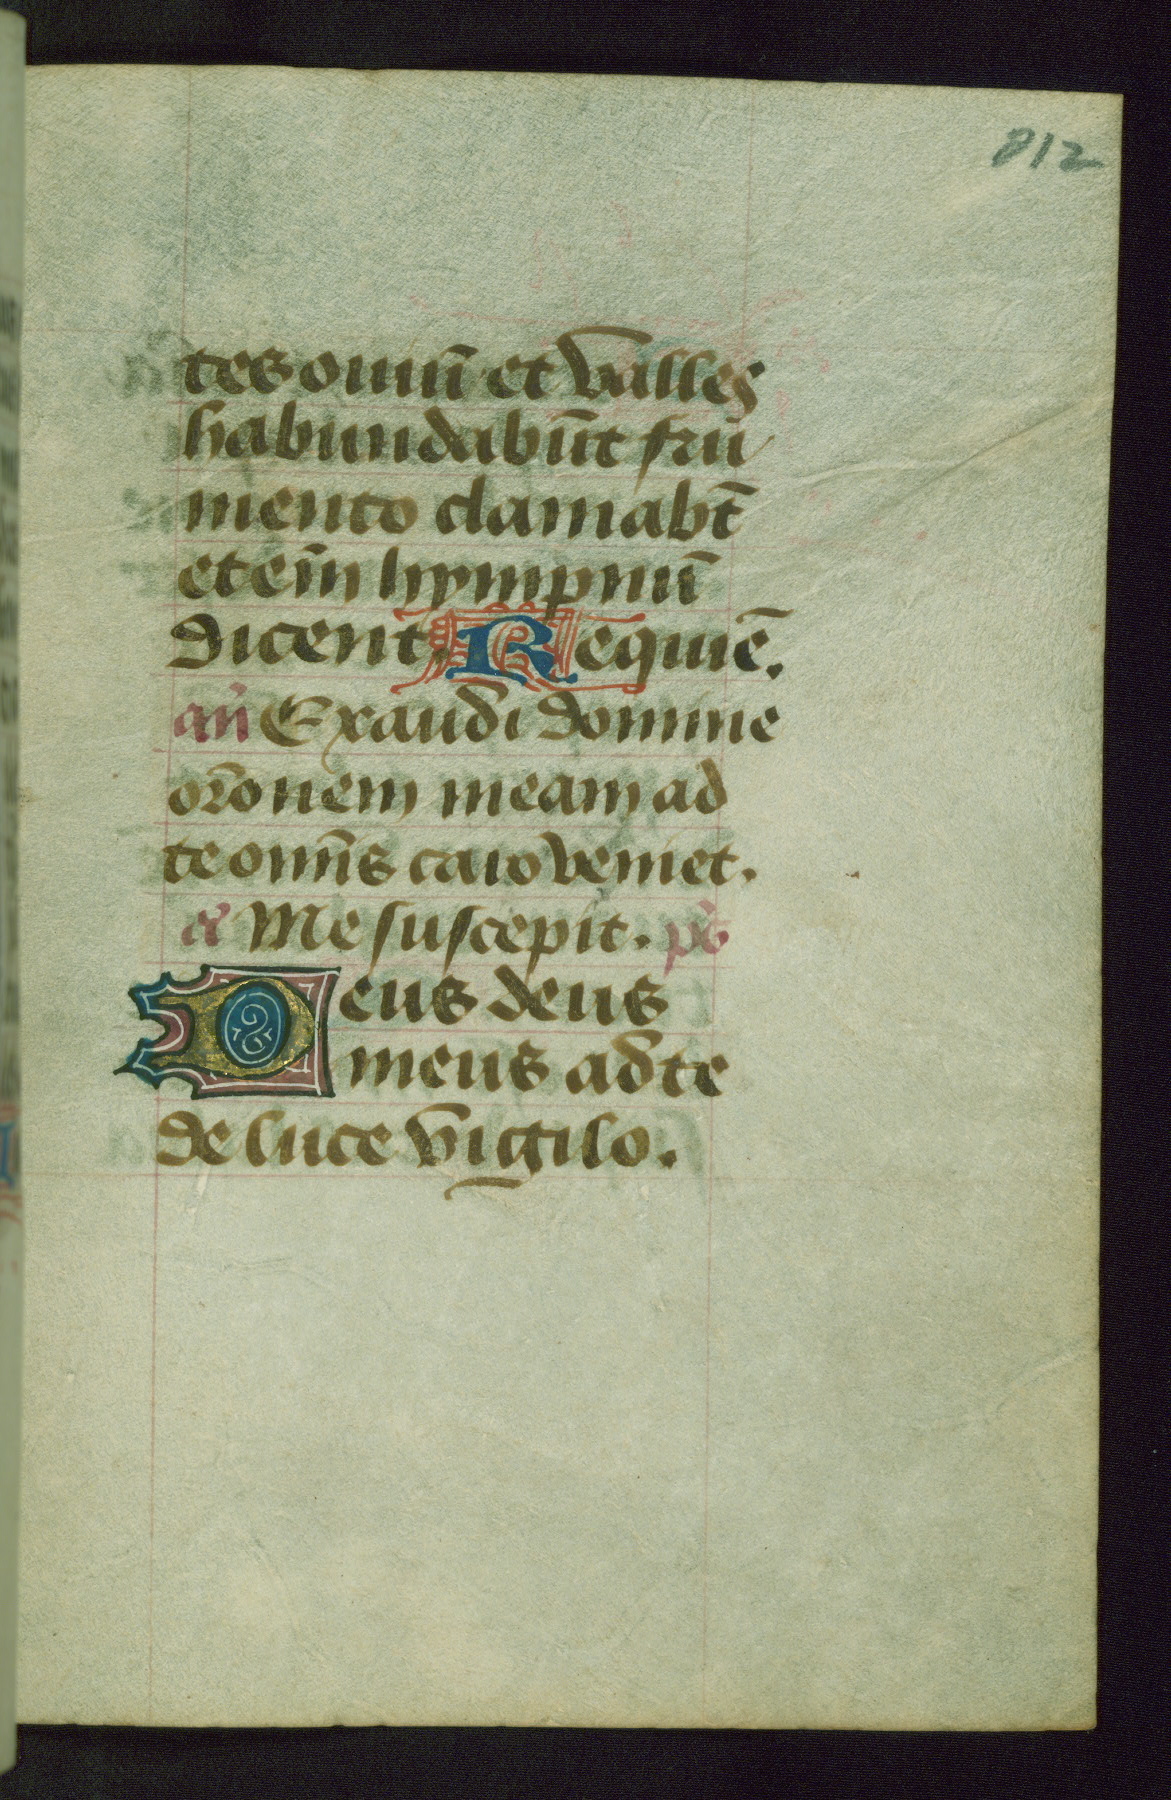 212
tes ouiū et valles
habundabūt frū
mento clamabt̄
etem̄ hympnū
dicent. Requiē.
an̄ Exaudi domine
orōonem meam ad
te omn̄s caro veniet.
a̅ Me suscepit. ps̄
Deus deus
meus ad te
de luce vigilo.